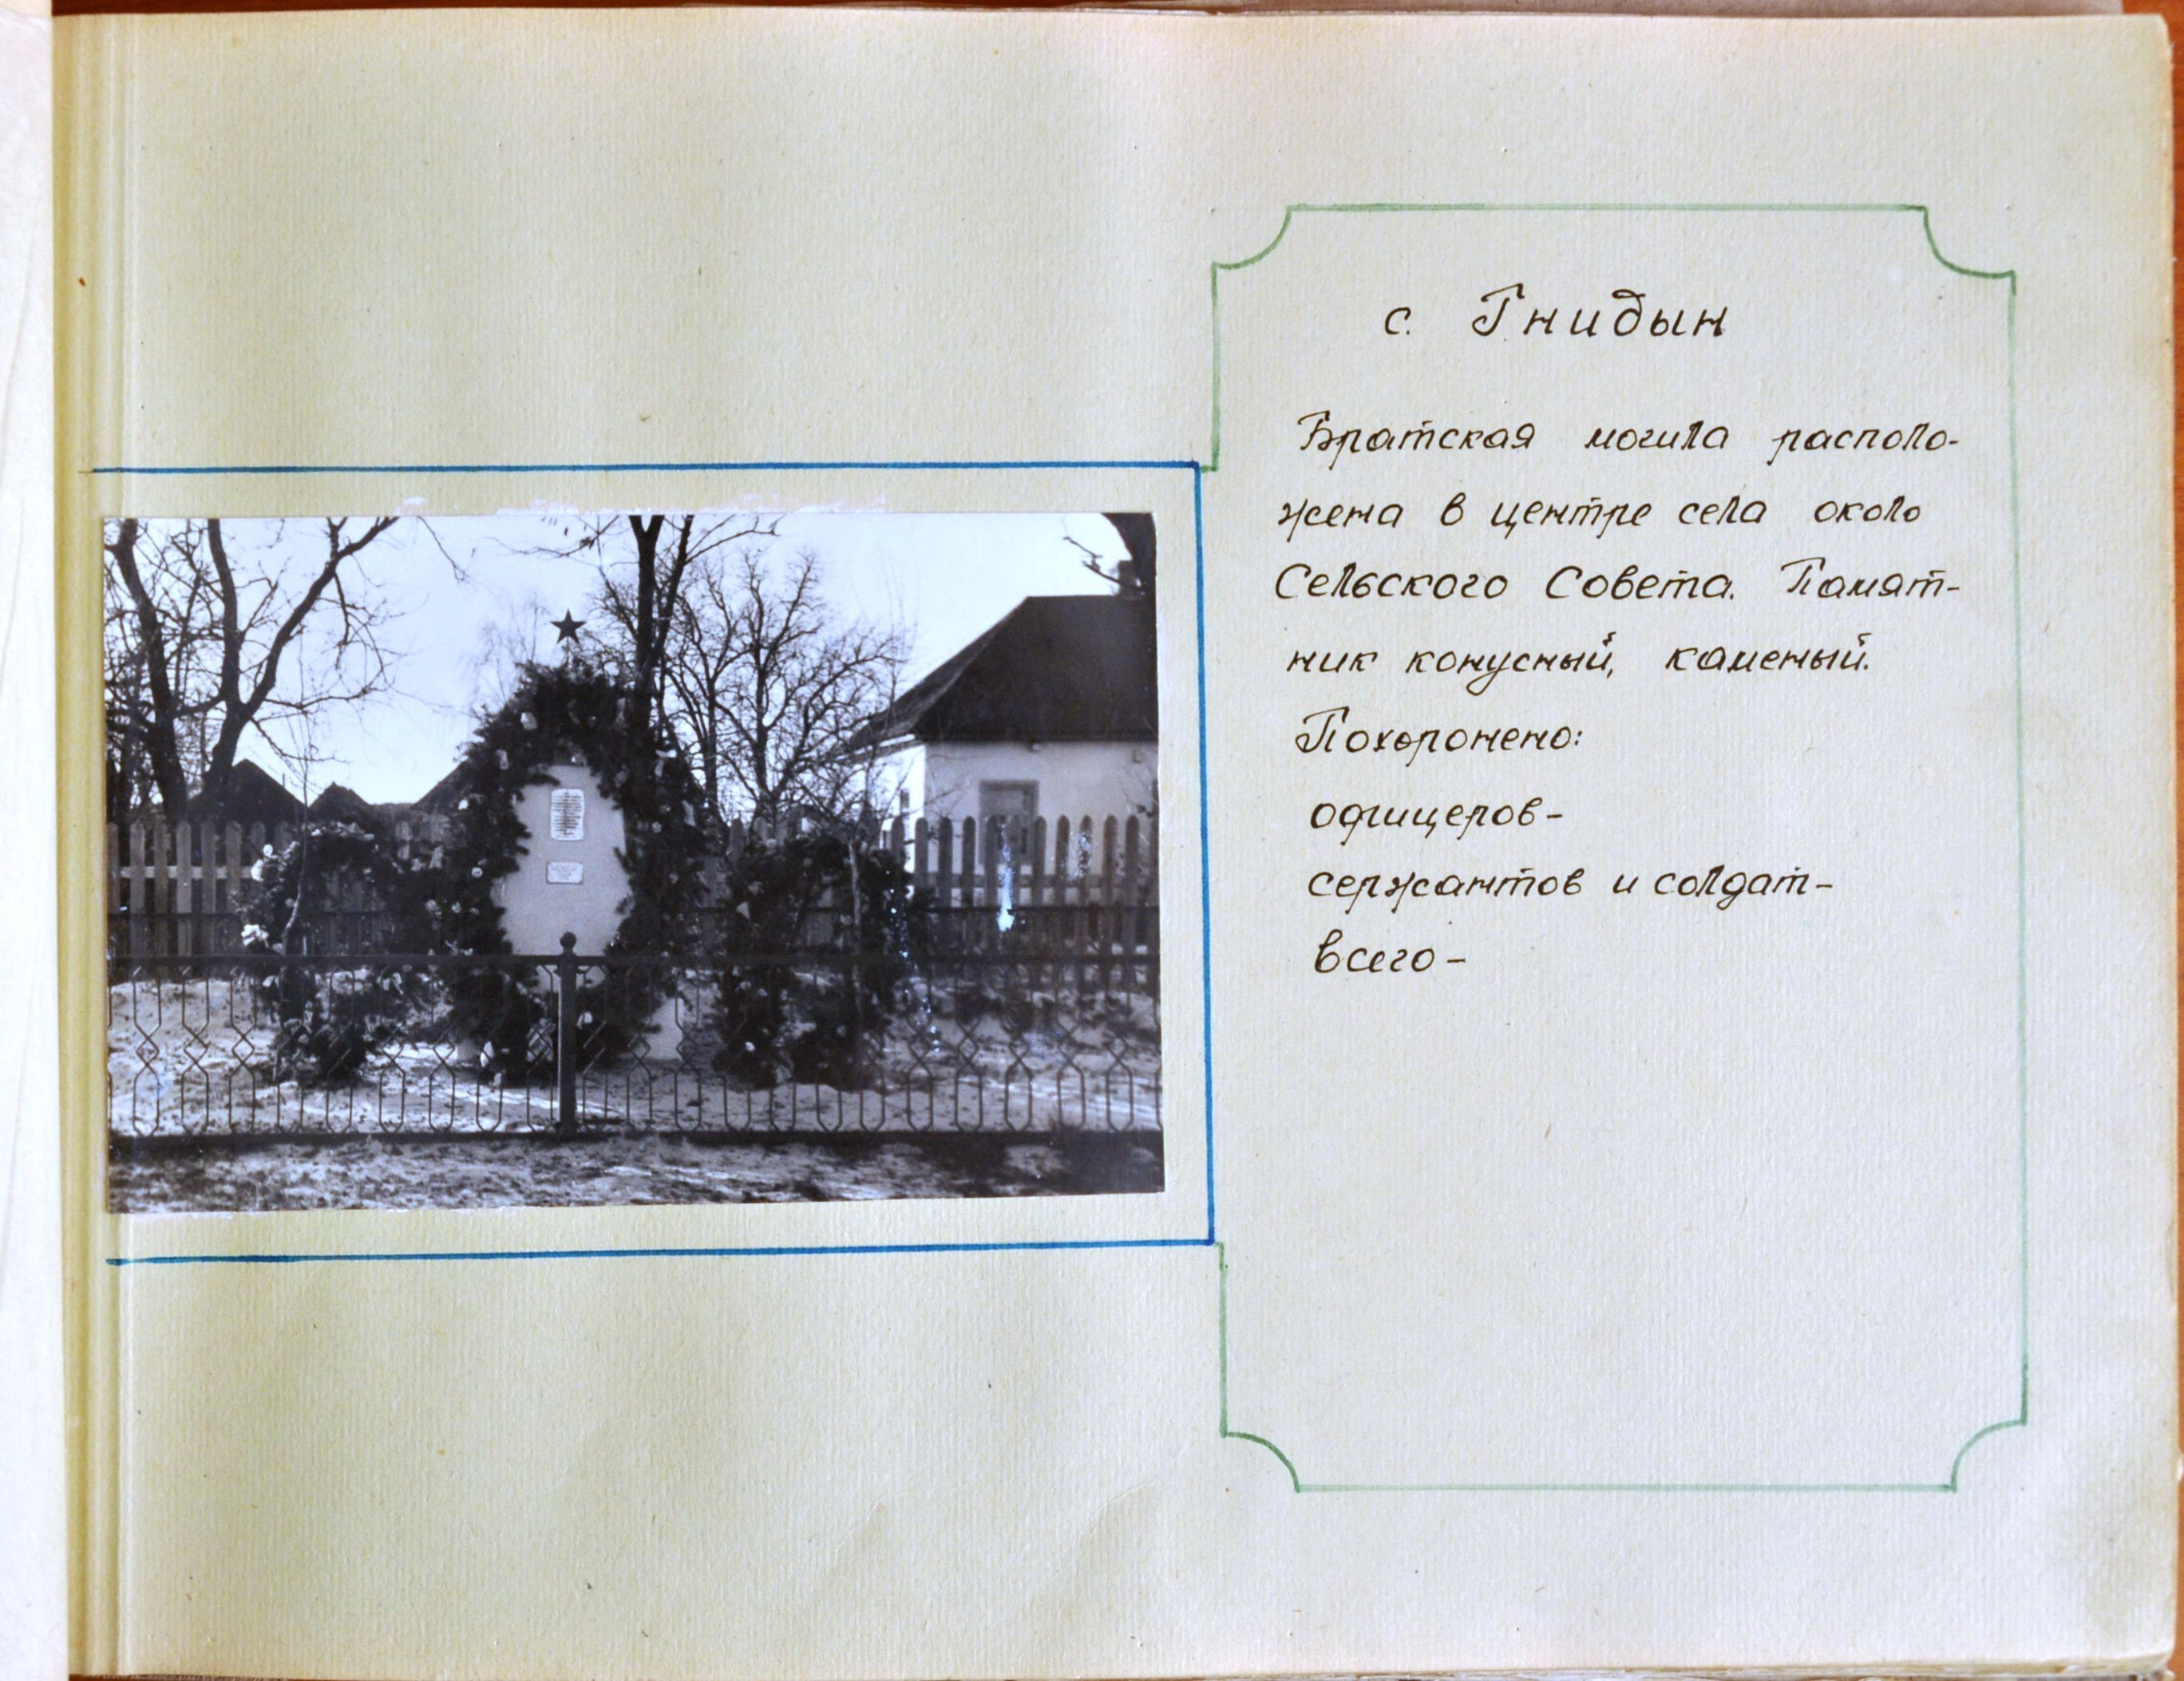 с. Гнидын
Братская могила располо-
жена в центре села около
Сельского Совета. Памят-
ник конусный, каменый.
Похоронено:
офицеров-
сержантов и солдат-
всего-